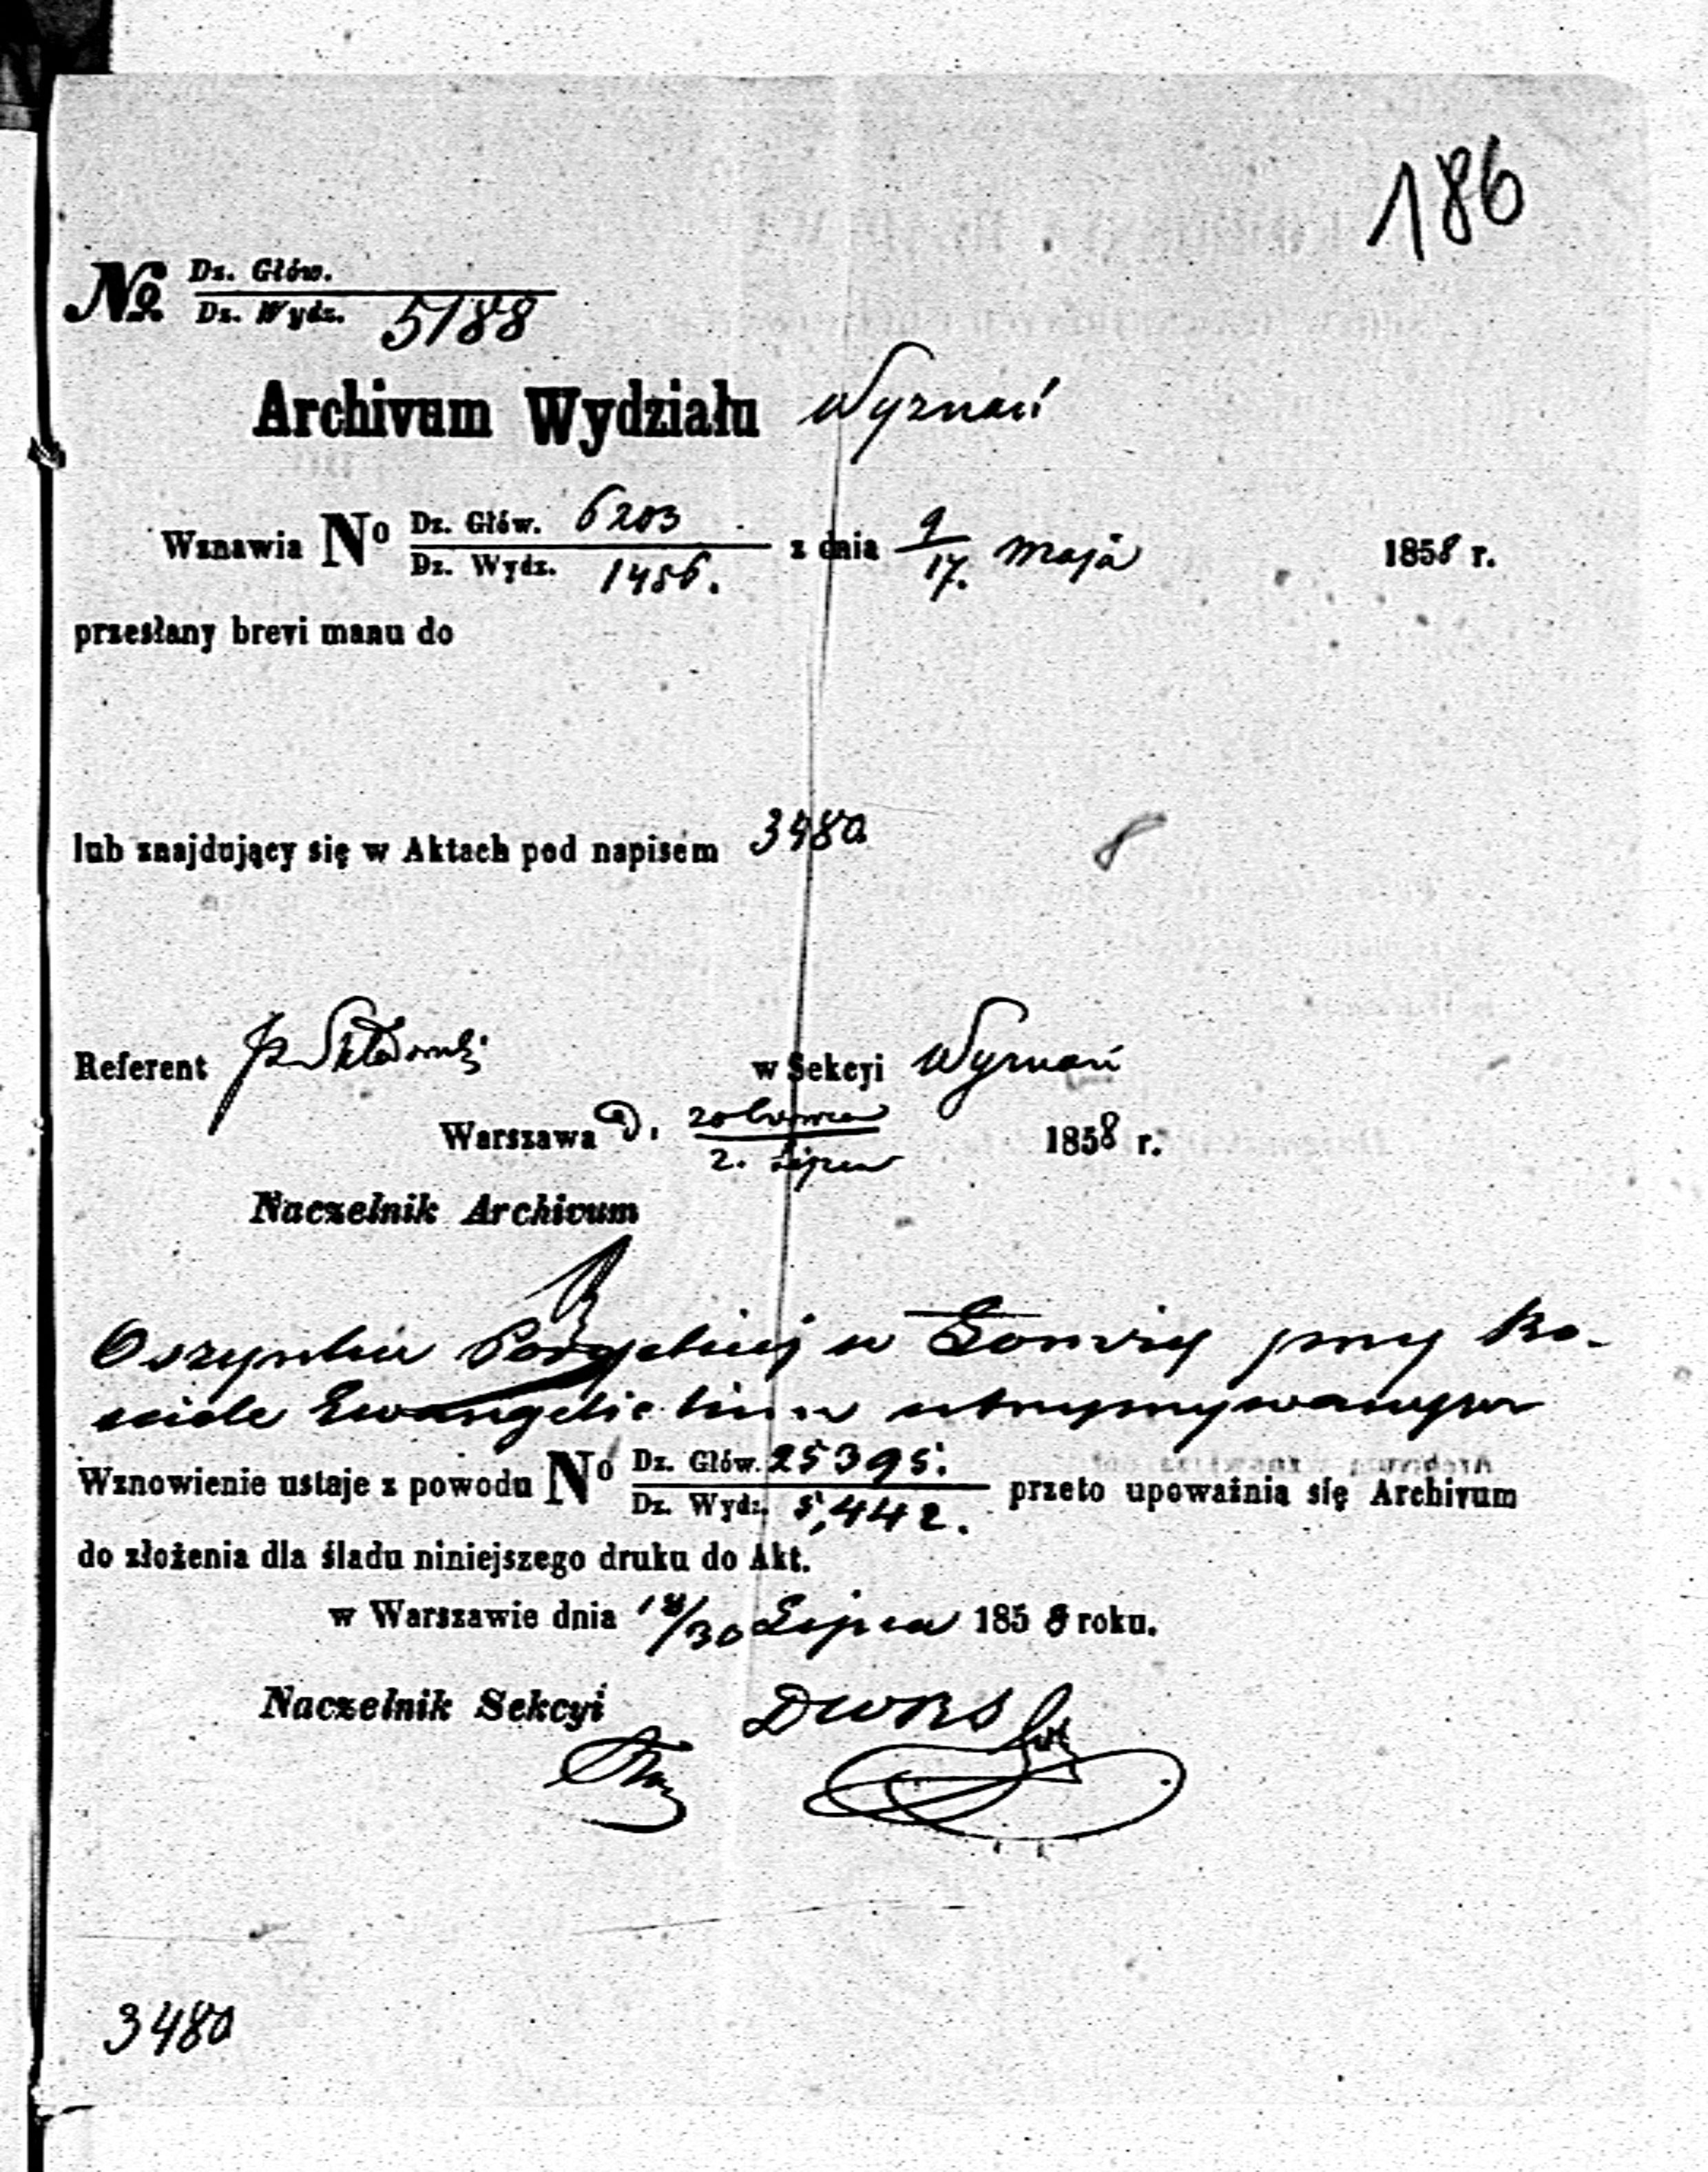 186
№ Dz. Głów.
Dz. Wydz. 5188
Archivum Wydziału Wyznań
Wznawia No Dz. Głów. 6203 z dnia 9/17. maja 1858 r.
Dz. Wydz. 1456.
przesłany brevi manu do
lub znajdujący się w Aktach pod napisem 3480
8
Referent w Sekcyi Wyznań
Warszawa D. 20 Czerwca / 2. Lipca 1858 r.
Naczelnik Archivum
O szynku w Łomży przy Ko-
ściele Ewangelickim utrzymywanym
Wznowienie ustaje z powodu No Dz. Głów. 25395. przeto upoważnia się Archivum
Dz. Wydz. 5,442.
do złożenia dla śladu niniejszego druku do Akt.
w Warszawie dnia 18/30 Lipca 1858 roku.
Naczelnik Sekcyi
3480